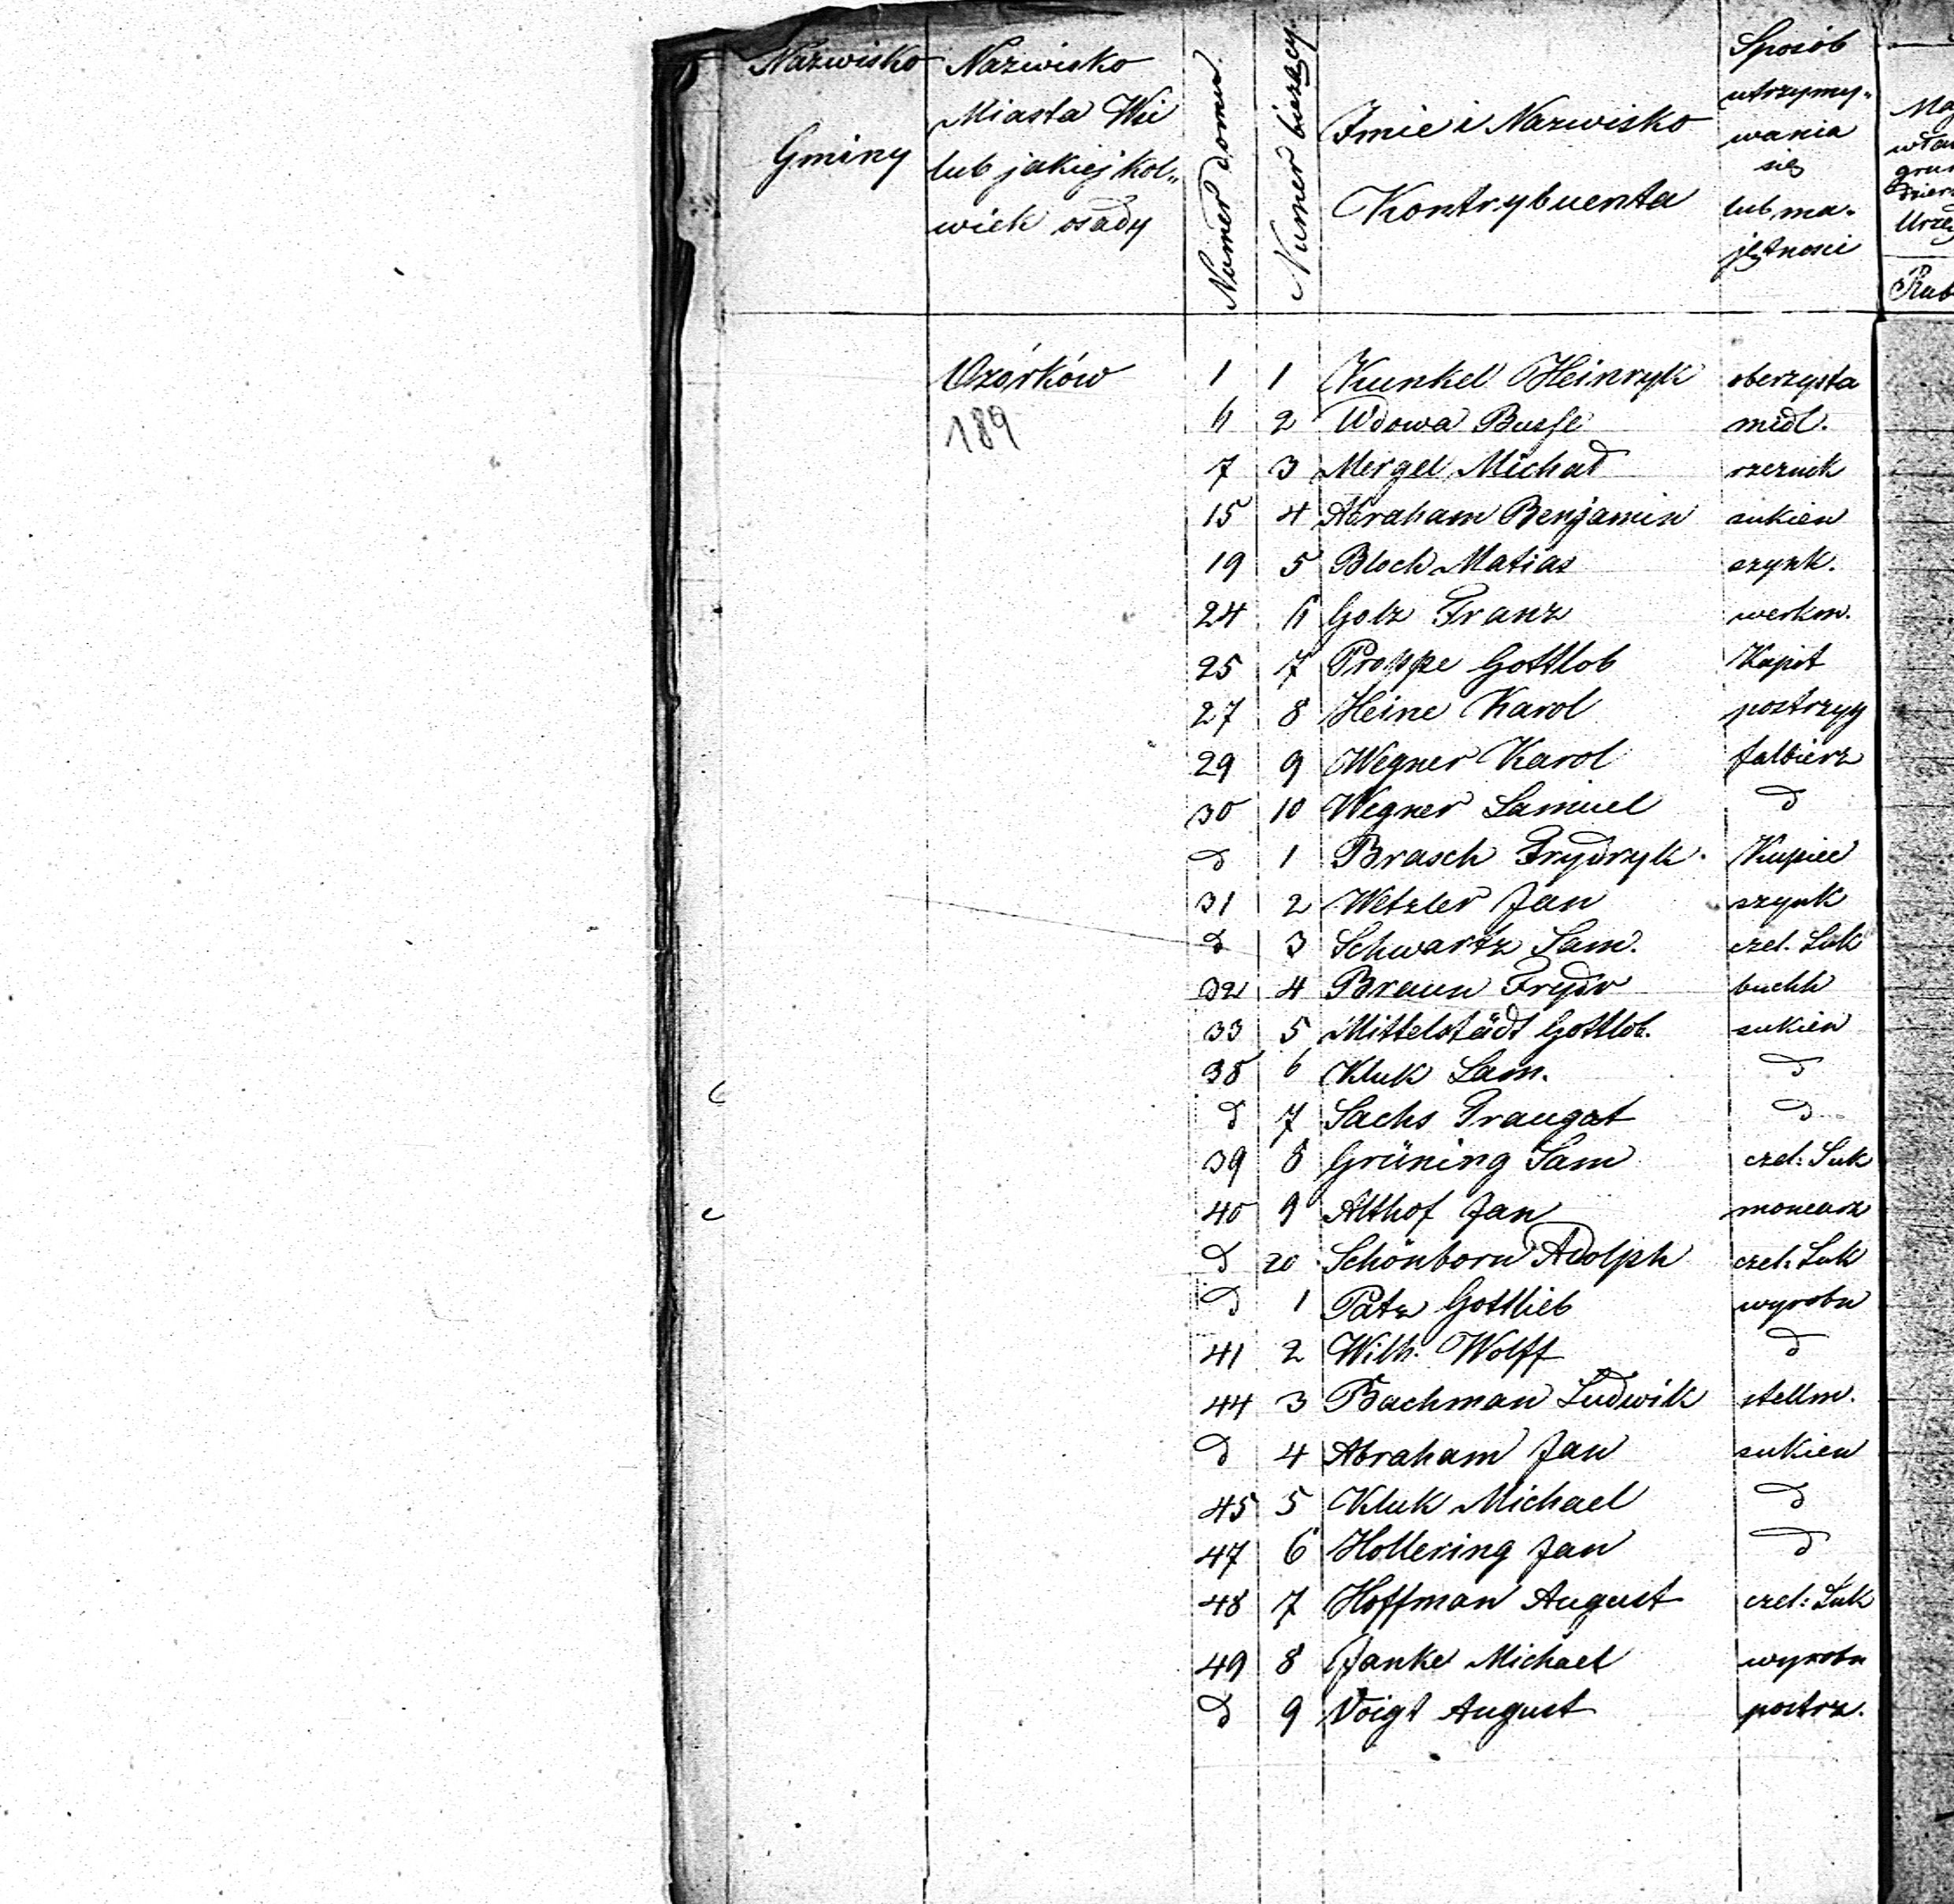 Nazwisko Gminy
Nazwisko Miasta Wsi lub jakiej kol„wiek osady
Numer domu
Numer bieżący
Imie i Nazwisko Kontrybuenta
Sposób utrzymy„wania się lub ma-jętnosci
Rub
Ozorków 1 1 Kunkel Heinryk oberzysta
189
6 2 Wdowa Busse midl.
7 3 Mergel Michał rzeznik
15 4 Abraham Benjamin sukien
19 5 Bloch Matias szynk.
24 6 Golz Franz werkm.
25 7 Proppe Gottlob Kapit
27 8 Heine Karol postrzyg
29 9 Wegner Karol falbierz
30 10 Wegner Samuel d
d 1 Brasch Frydryk. Kupiec
31 2 Wetzler Jan szynk
d 3 Schwartz Sam. czel. Suk
32 4 Braun Frydr buchh
33 5 Mittelstädt Gottlob. sukien
38 6 Kluk Sam. d
d 7 Sachs Traugot d
39 8 Grüning Sam czel: Suk
40 9 Althof Jan moncarz
d 20 Schönborn Adolph czel: Suk
d 1 Patz Gottlieb wyrobn
41 2 Wilh. Wolff d
44 3 Bachman Ludwik stellm.
d 4 Abraham Jan sukien
45 5 Kluk Michael d
47 6 Hollering Jan d
48 7 Hoffman August czel: Suk
49 8 Janke Michael wyrobn
d 9 Voigt August postrz.